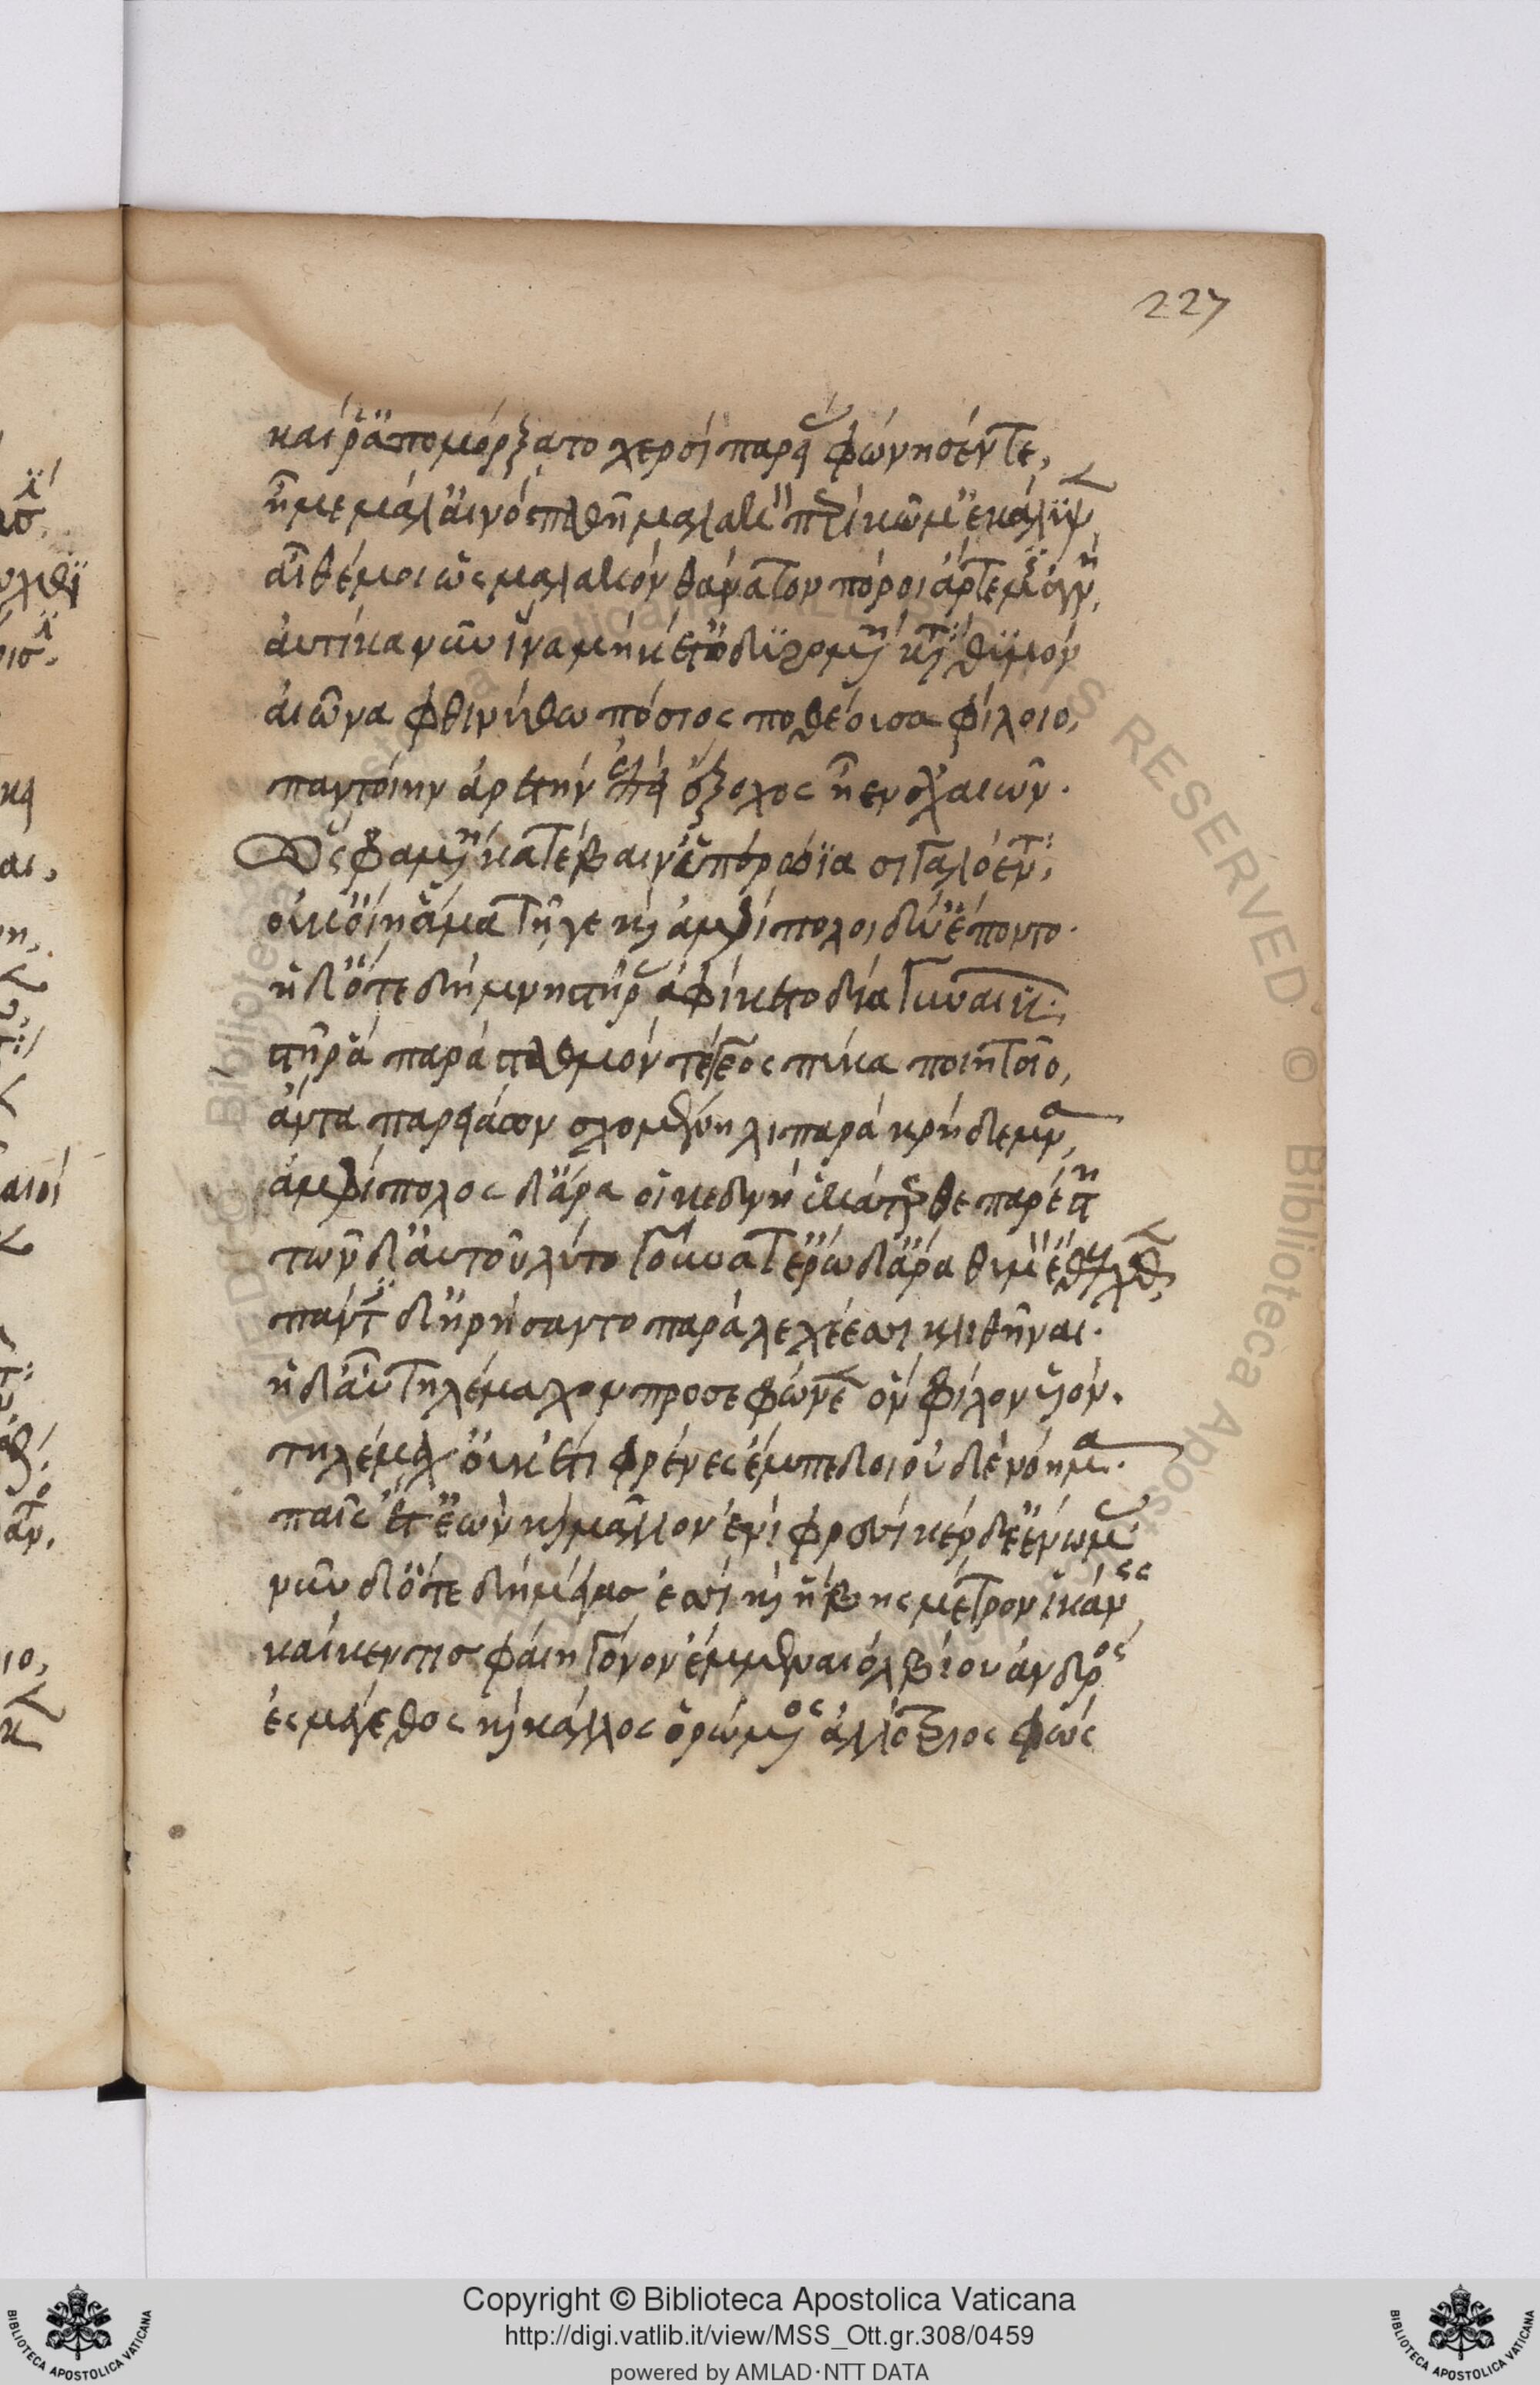 227
καί ῥ' ἀπομόρξατο χερσὶ παρειὰς φώνησέν τε,
ἦ με μάλ' αἰνοπαθῆ μαλακὸν περὶ κῶμ' ἐκάλυψεν
αἴθέ μοι ὣς μαλακὸν θάνατον πόροι ἄρτεμις ἁγνὴ,
αὐτίκα νῦν ἵνα μηκέτ' ὀδυρομένη κατὰ θυμὸν
αἰῶνα φθινύθω πόσιος ποθέουσα φίλοιο,
παντοίην ἀρετὴν ἐπεὶ ἔξοχος ἦεν ἀχαιῶν.
Ὣς φαμένη κατέβαιν' ὑπερώϊα σιγαλόεντα,
οὐκ οἴη ἅμα τῆγε καὶ ἀμφίπολοι δύ' ἕποντο.
ἡ δ' ὅτε δὴ μνηστῆρας ἀφίκετο δῖα γυναικῶν,
στῆ ῥα παρὰ σταθμὸν τέγεος πύκα ποιητοῖο,
ἄντα παρειάων σχομένη λιπαρὰ κρήδεμνα,
ἀμφίπολος δ' ἄρα οἱ κεδνὴ ἑκάτερθε παρέστη
τῶν δ' αὐτοῦ λύτο γούνατ' ἔρω δ' ἄρα θυμὸν ἔθελχθεν,
πάντες δ' ἠρήσαντο παραὶ λεχέεσσι κλιθῆναι.
ἡ δ' αὖ τηλέμαχον προσεφώνεεν ὃν φίλον υἱόν.
τηλέμαχ' οὐκέτι φρένες ἔμπεδοι οὐδὲ νόημα.
παῖς ἔτ' ἐὼν καὶ μᾶλλον ἐνὶ φρεσὶ κέρδε' ἐνώμας
νῦν δ' ὅτε δὴ μέγας ἐσσὶ καὶ ἥβης μέτρον ἱκάνεις
καί κέν τις φαίη γόνον ἔμμεναι ὀλβίου ἀνδρὸς
ἐς μέγεθος καὶ κάλλος ὁρώμενος ἀλλότριος φώς
Copyright © Biblioteca Apostolica Vaticana
http://digi.vatlib.it/view/MSS_Ott.gr.308/0459
powered by AMLAD·NTT DATA